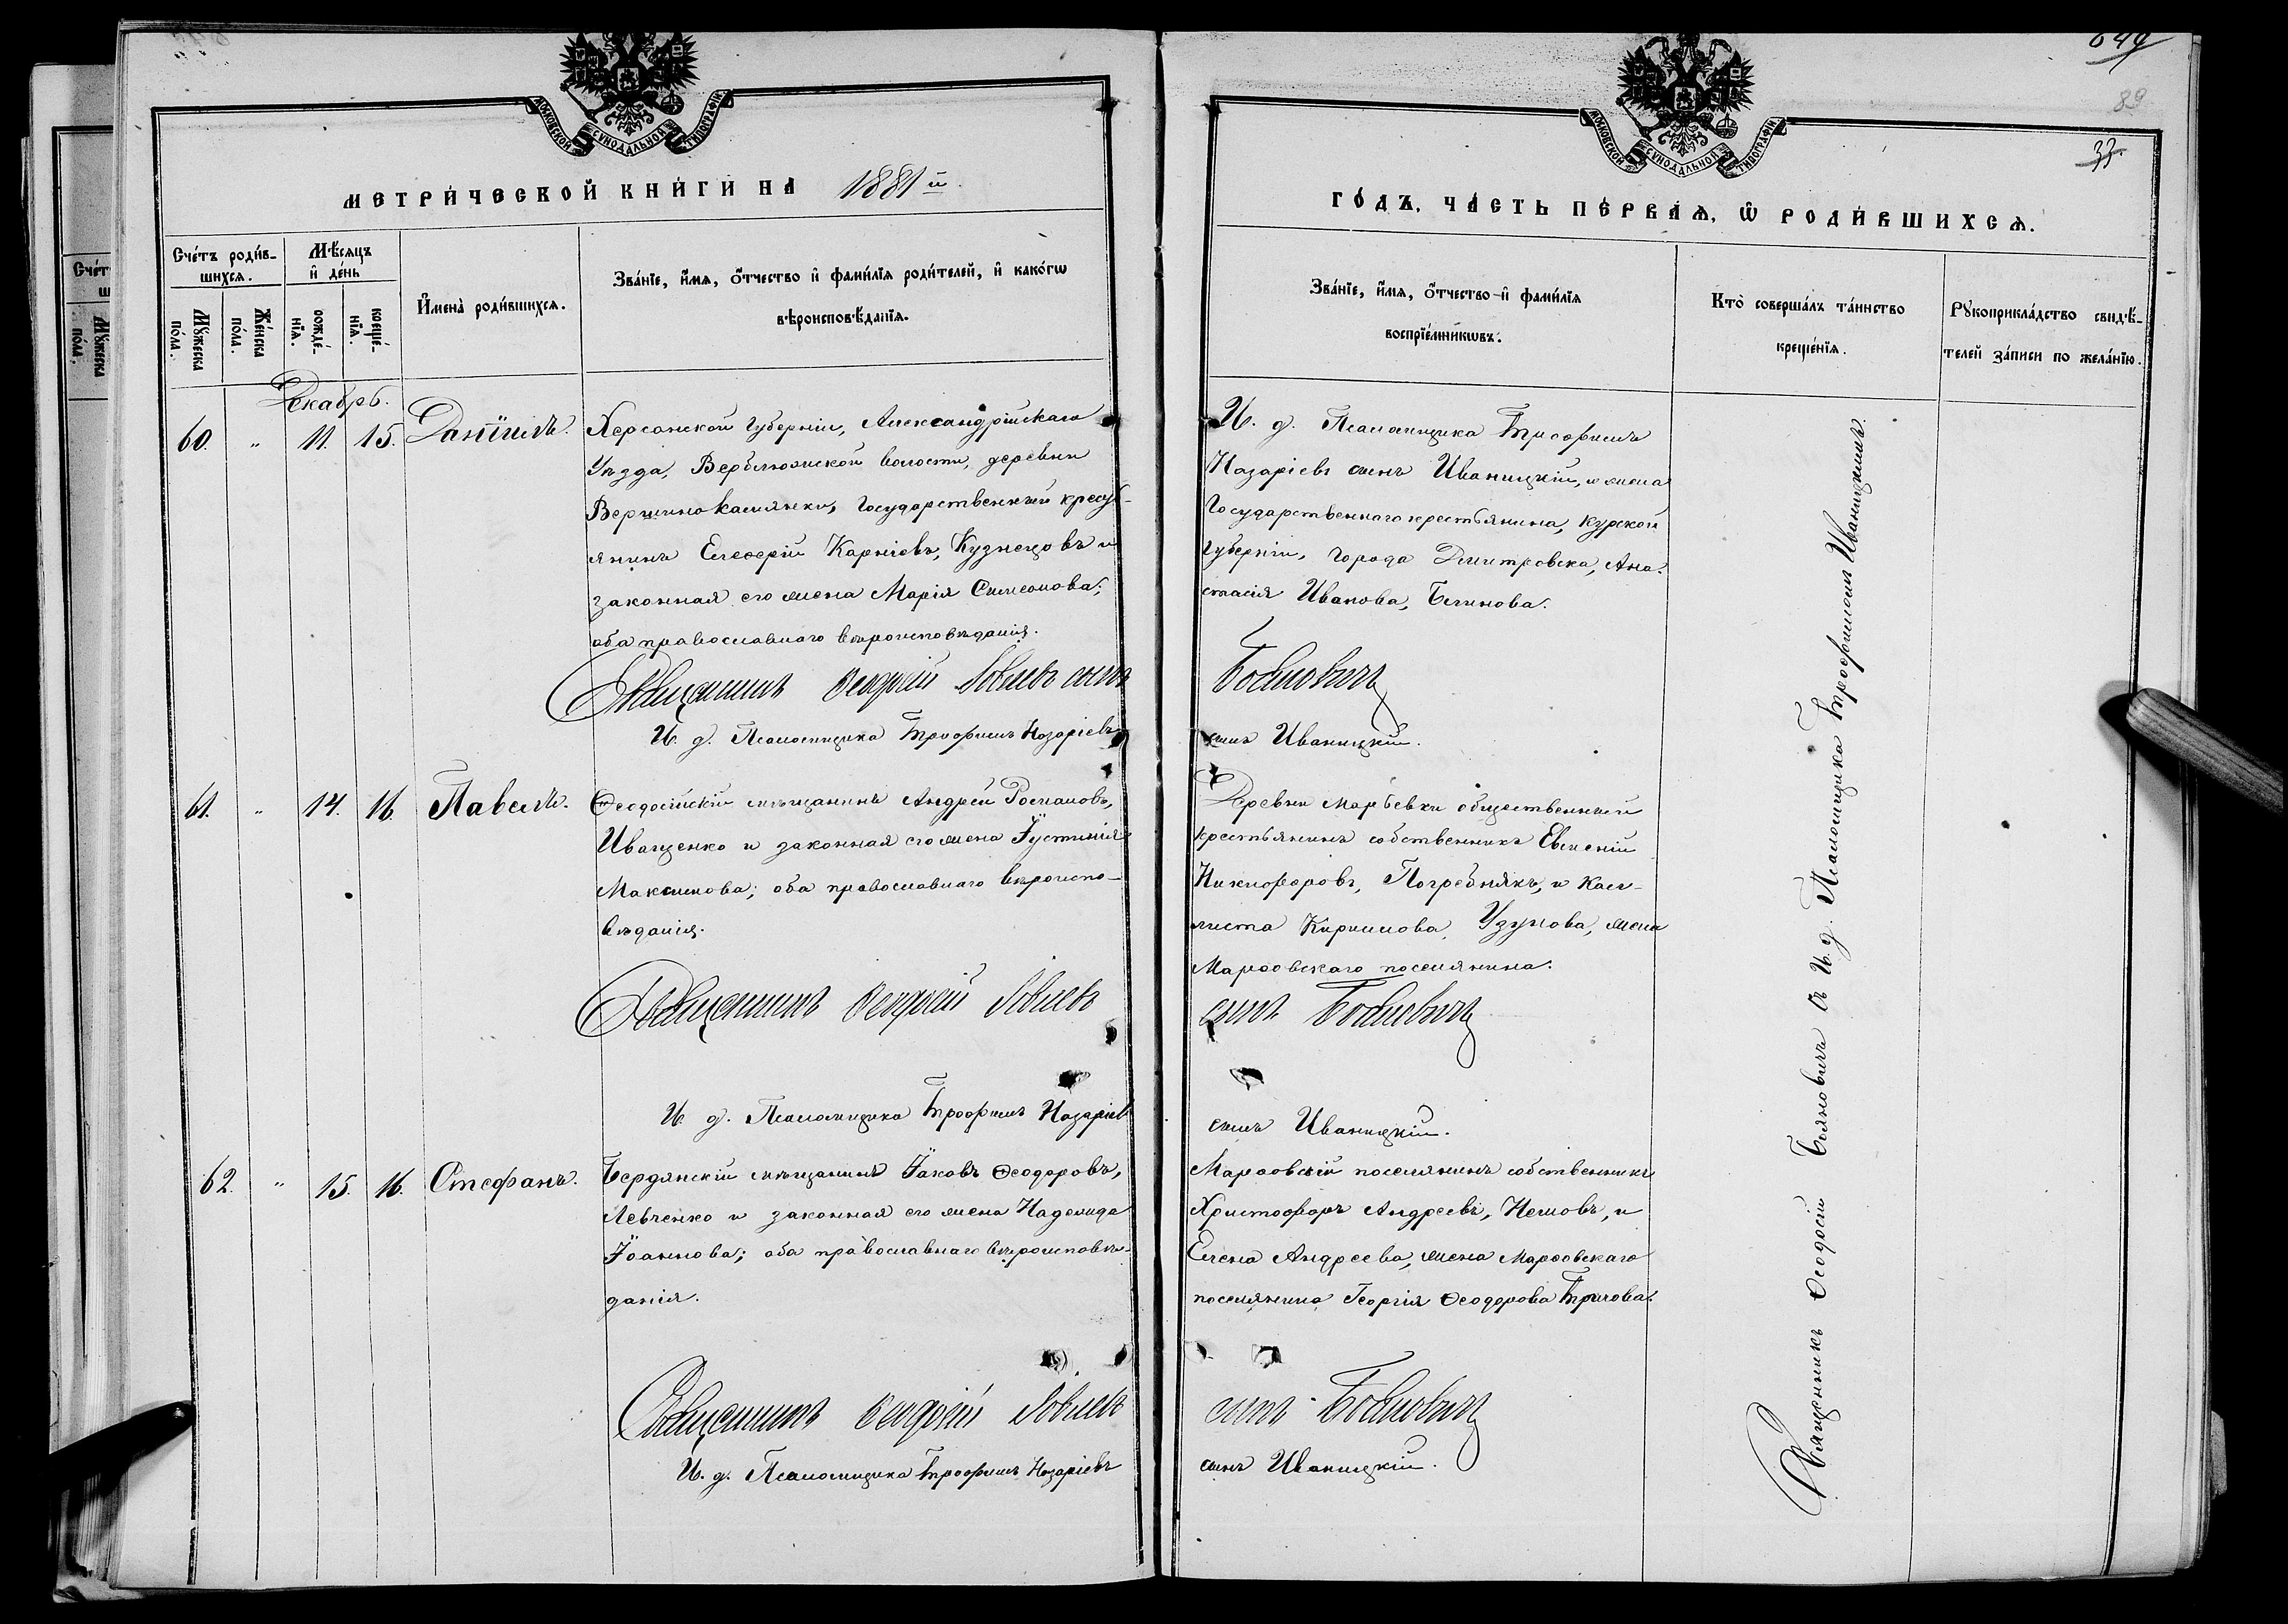 МОСКОВСКОЙ СѴНОДАЛЬНОЙ ТИПОГРАФІИ
МЕТРИ́ЧЕСКОЙ КНИ́ГИ НА 1881 й
Сче́тъ роди́в-
шихся.
Мѣ́сяцъ
и де́нь
Мꙋ́жеска
по́ла.
Же́нска
по́ла.
рожде́-
нїѧ.
креще́-
нїѧ.
И҆мена̀ роди́вшихсѧ.
Зва́нїе, и҆́мѧ, ѻ҆́тчество и҆ фами́лїѧ роди́телей, и҆ како́гѡ
вѣроисповѣ́данїѧ.
Декабрь.
60. " 11. 15. Даніилъ.
Херсонской губерніи, Александрійскаго
Уѣзда, Верблюжской волости, деревни
Вершинокамянки, Государственный кресть-
янинъ Елеѳерій Карпіевъ, Кузнецовъ и
законная его жена Марія Симеонова;
оба православнаго вѣроисповѣданія.
Священникъ Ѳеодосій Іовлевъ сынъ
И. д. Псаломщика Трофимъ Назаріевъ
61. " 14. 16. Павелъ.
Ѳеодосійскій мѣщанинъ Андрей Романовъ,
Иващенко и законная его жена Іустинія
Максимова; оба православнаго вѣроиспо-
вѣданія.
Священникъ Ѳеодосій Іовлевъ
И. д. Псаломщика Трофимъ Назаріевъ
62. " 15. 16. Стефанъ.
Бердянскій мѣщанинъ Іаковъ Ѳеодоровъ,
Левченко и законная его жена Надежда
Іоаннова; оба православнаго вѣроисповѣ-
данія.
Священникъ Ѳеодосій Іовлевъ
И. д. Псаломщика Трофимъ Назаріевъ
649
89
33.
МОСКОВСКОЙ СѴНОДАЛЬНОЙ ТИПОГРАФІИ
ГО́ДЪ, ЧА́СТЬ ПЕ́РВАѦ, Ѽ РОДИ́ВШИХСѦ.
Зва́нїе, и҆́мѧ, ѻ҆́тчество и҆ фами́лїѧ
воспрїе́мникѡвъ.
Кто̀ соверша́лъ та́инство
креще́нїѧ.
Рꙋкоприкла́дство свидѣ́-
телей за́писи по жела́нїю.
И. д. Псаломщика Трофимъ
Назаріевъ сынъ Иваницкій, и жена
Государственнаго крестьянина, Курской
губерніи, города Дмитровска, Ана-
стасія Иванова, Блинова.
Бояновичъ
сынъ Иваницкій.
Деревни Марьевки общественный
крестьянинъ собственникъ Евгеній
Никифоровъ, Погребнякъ, и Кал-
листа Кириллова, Узунова, жена
Марѳовскаго поселянина.
сынъ Бояновичъ
сынъ Иваницкій.
Марѳовскій поселянинъ собственникъ
Христофоръ Андреевъ, Нешовъ, и
Елена Андреева, жена Марѳовскаго
поселянина Георгія Ѳеодорова Тричова.
сынъ Бояновичъ
сынъ Иваницкій.
Священникъ Ѳеодосій Бояновичъ съ И. д. Псаломщика Трофимомъ Иваницкимъ.